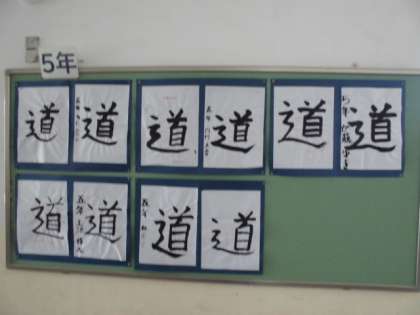 5年
道
道
道
道
道
道
道
道
道
道